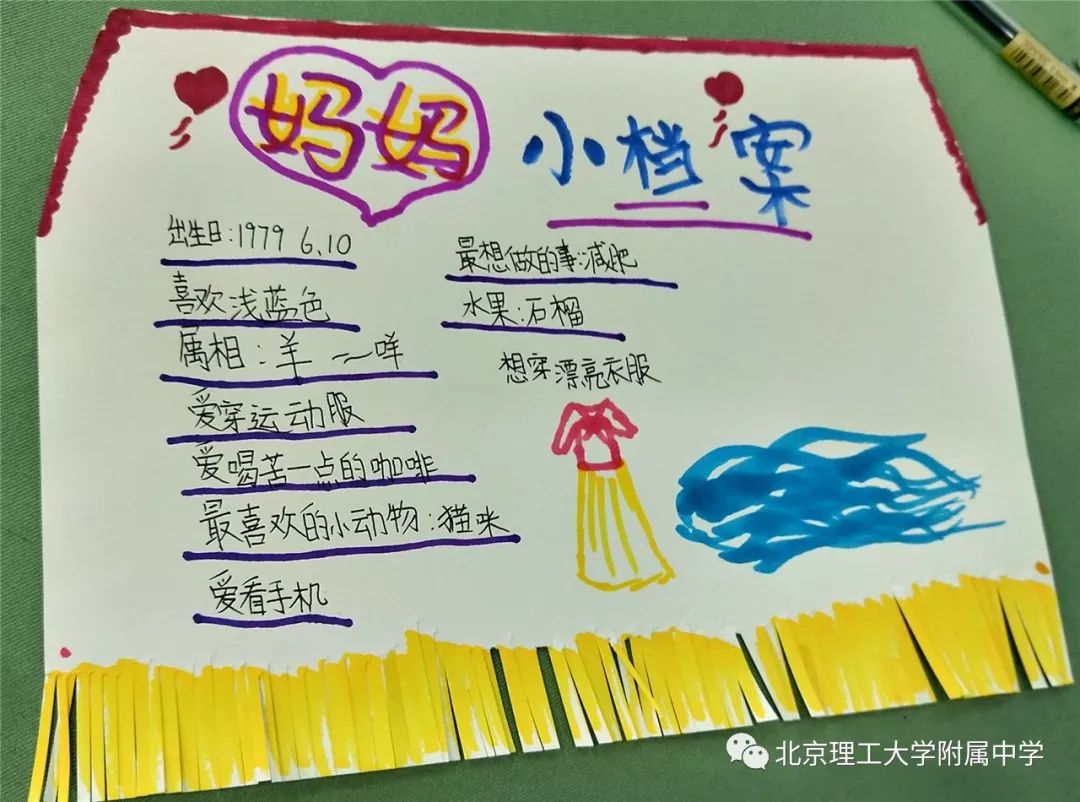 妈妈 小档案
出生日:1979 6.10
喜欢浅蓝色
属相:羊 ~~咩
爱穿运动服
爱喝苦一点的咖啡
最喜欢的小动物:猫咪
爱看手机
最想做的事:减肥
水果:石榴
想穿漂亮衣服
北京理工大学附属中学